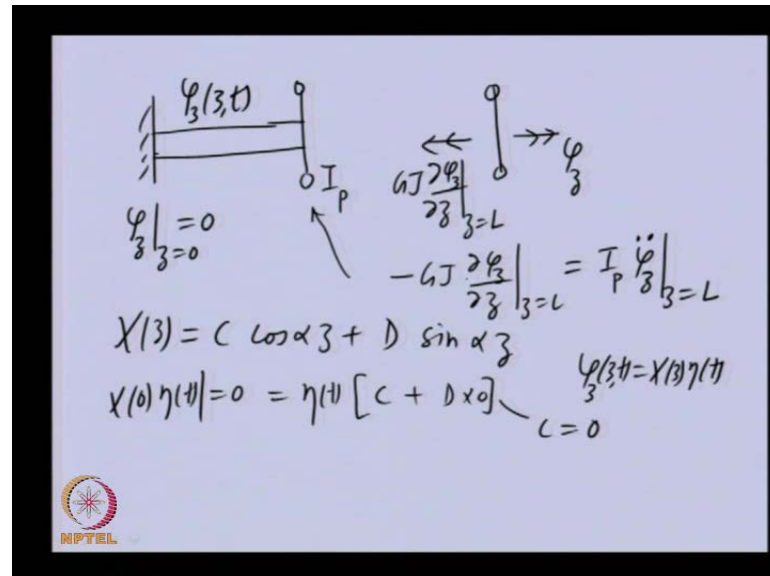 φ_z(z,t)
I_p
φ_z|_{z=0} = 0
φ_z
GJ ∂φ_z/∂z|_{z=L}
-GJ ∂φ_z/∂z|_{z=L} = I_p φ̈_z|_{z=L}
X(z) = C cosαz + D sin αz
φ_z(z,t) = X(z)η(t)
X(0)η(t)| = 0 = η(t) [C + D×0]
C = 0
NPTEL